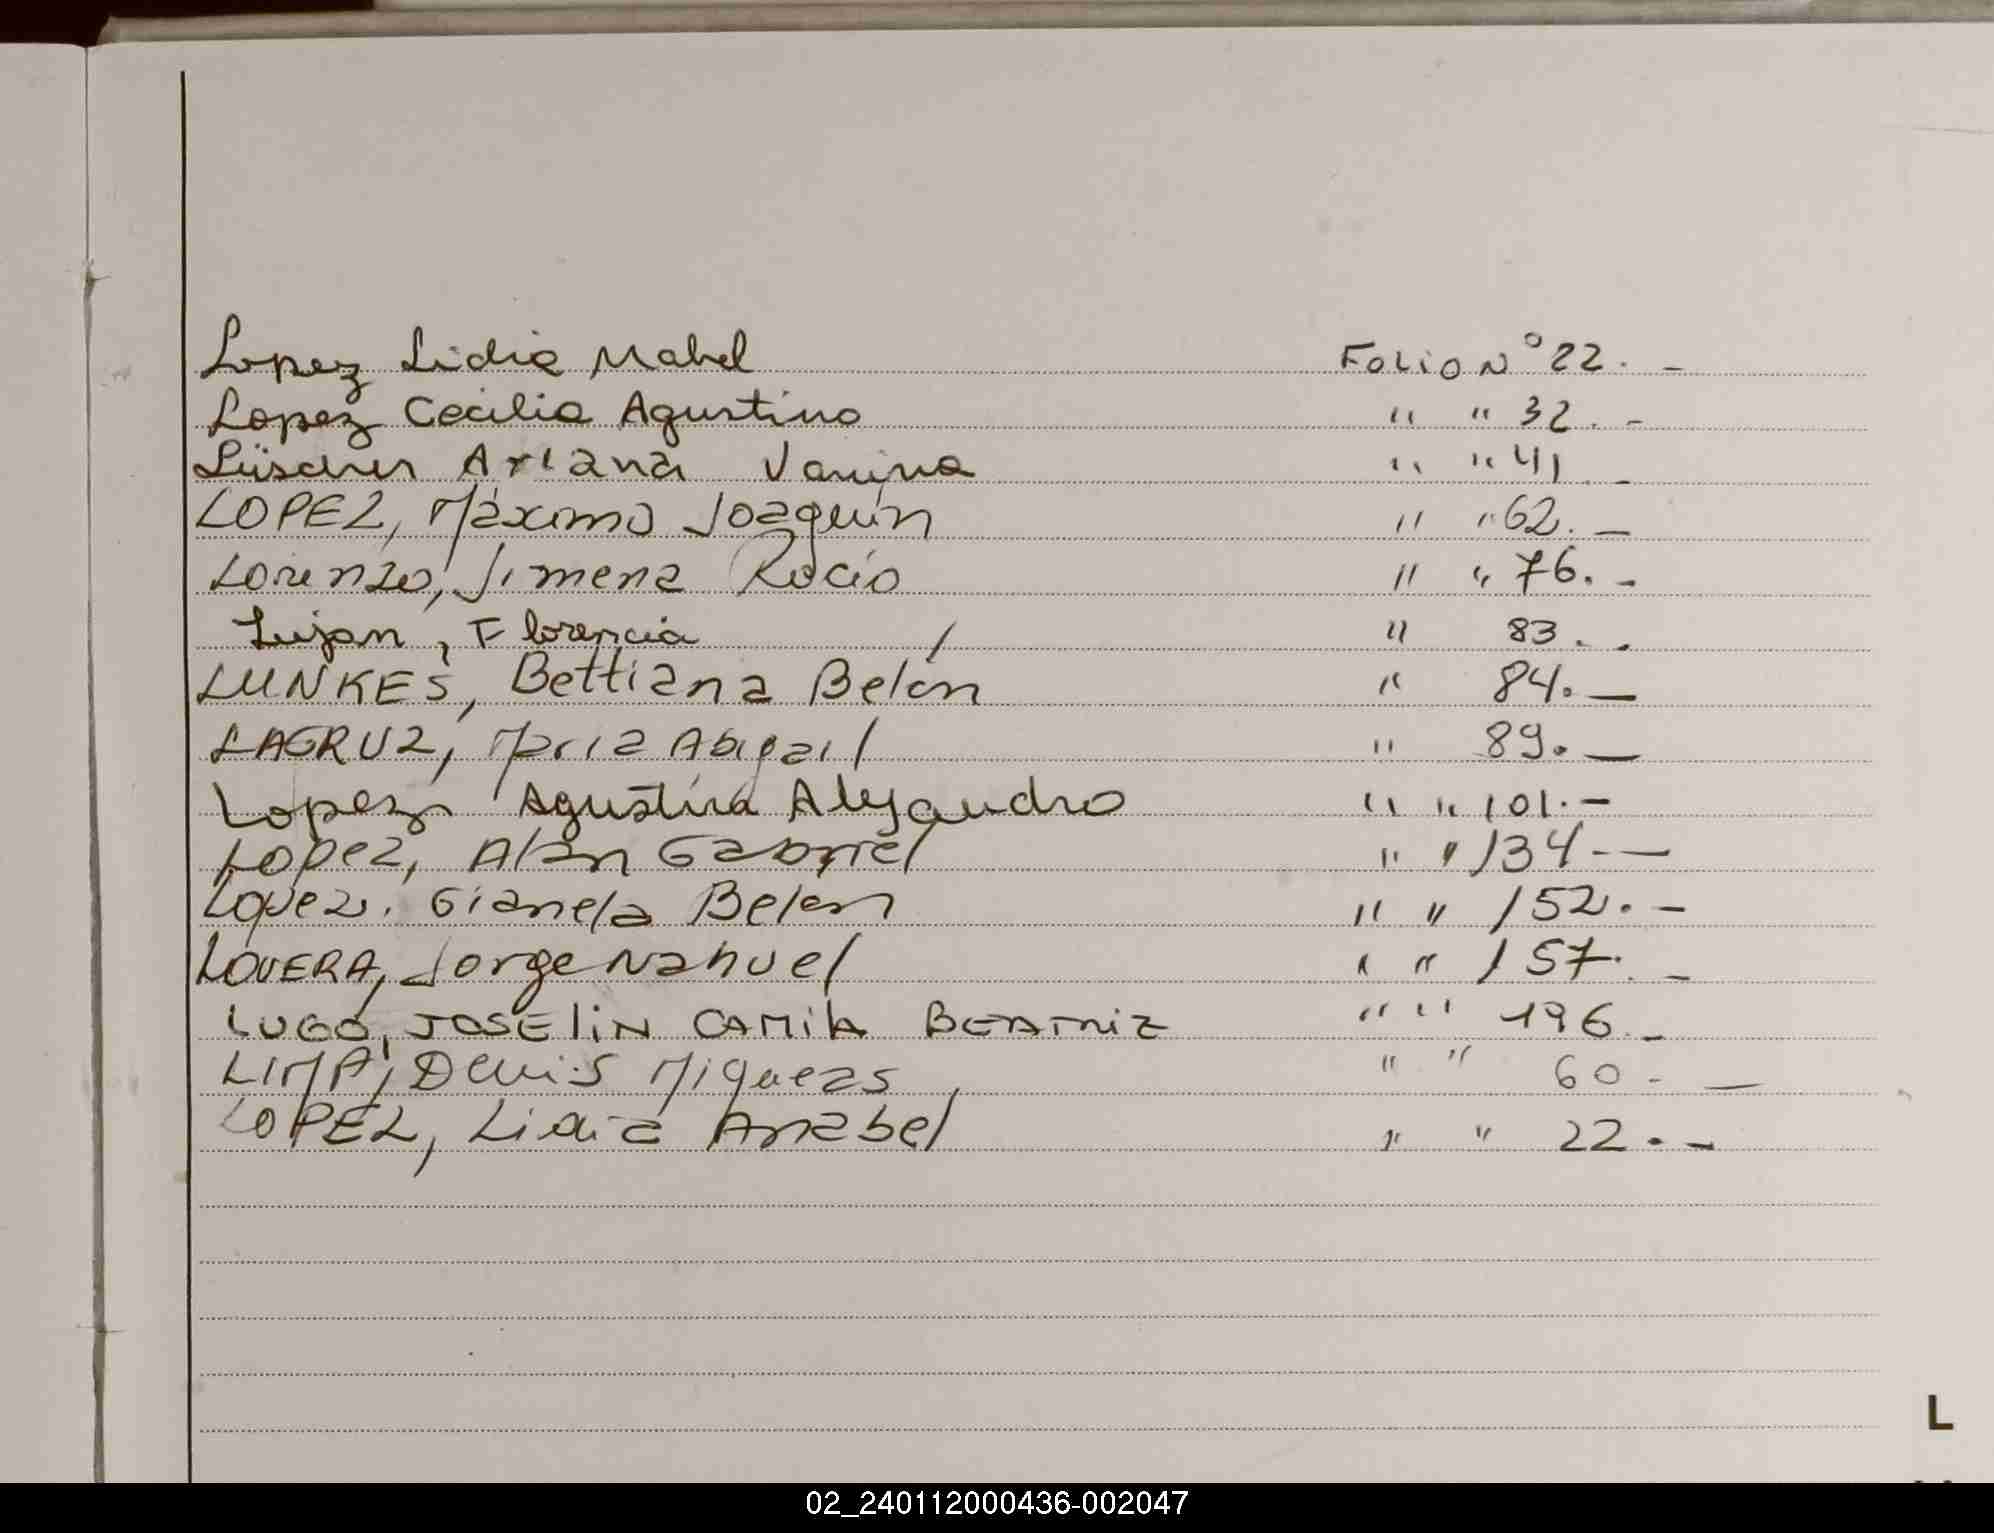 Lopez Lidia Mabel FOLIO Nº 22. -
Lopez Cecilia Agustina " " 32. -
Lüscher Ariana Vanina " " 41 -
LOPEZ, Máximo Joaquín " " 62. -
Lorenzo, Jimena Rocío " " 76. -
Lujan, Florencia / " 83. -
LUNKES, Bettiana Belén " 84. -
LAGRUZ, María Abigail " 89. -
Lopez Agustina Alejandro " " 101. -
Lopez, Alan Gabriel " " 134 - -
Lopez. Gianela Belen " " 152. -
LOVERA, Jorge Nahuel " " 157. -
LUGO, JOSELIN CAMILA BEATRIZ " " 196. -
LIMA, Denis Miqueas " " 60 - -
LOPEZ, Lidia Anabel " " 22. -
L
02_240112000436-002047